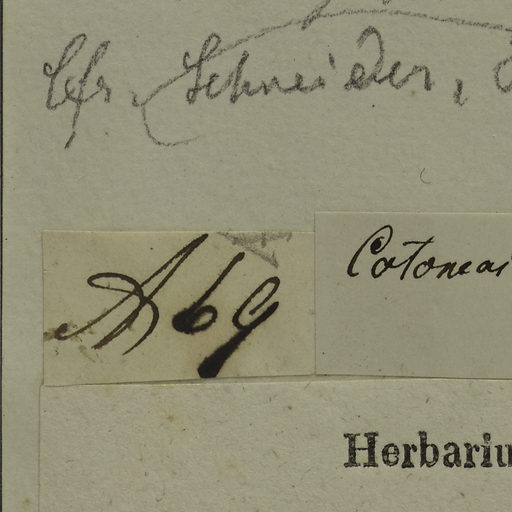 Cfr. Schneider,
A69
Cotoneas
Herbariu